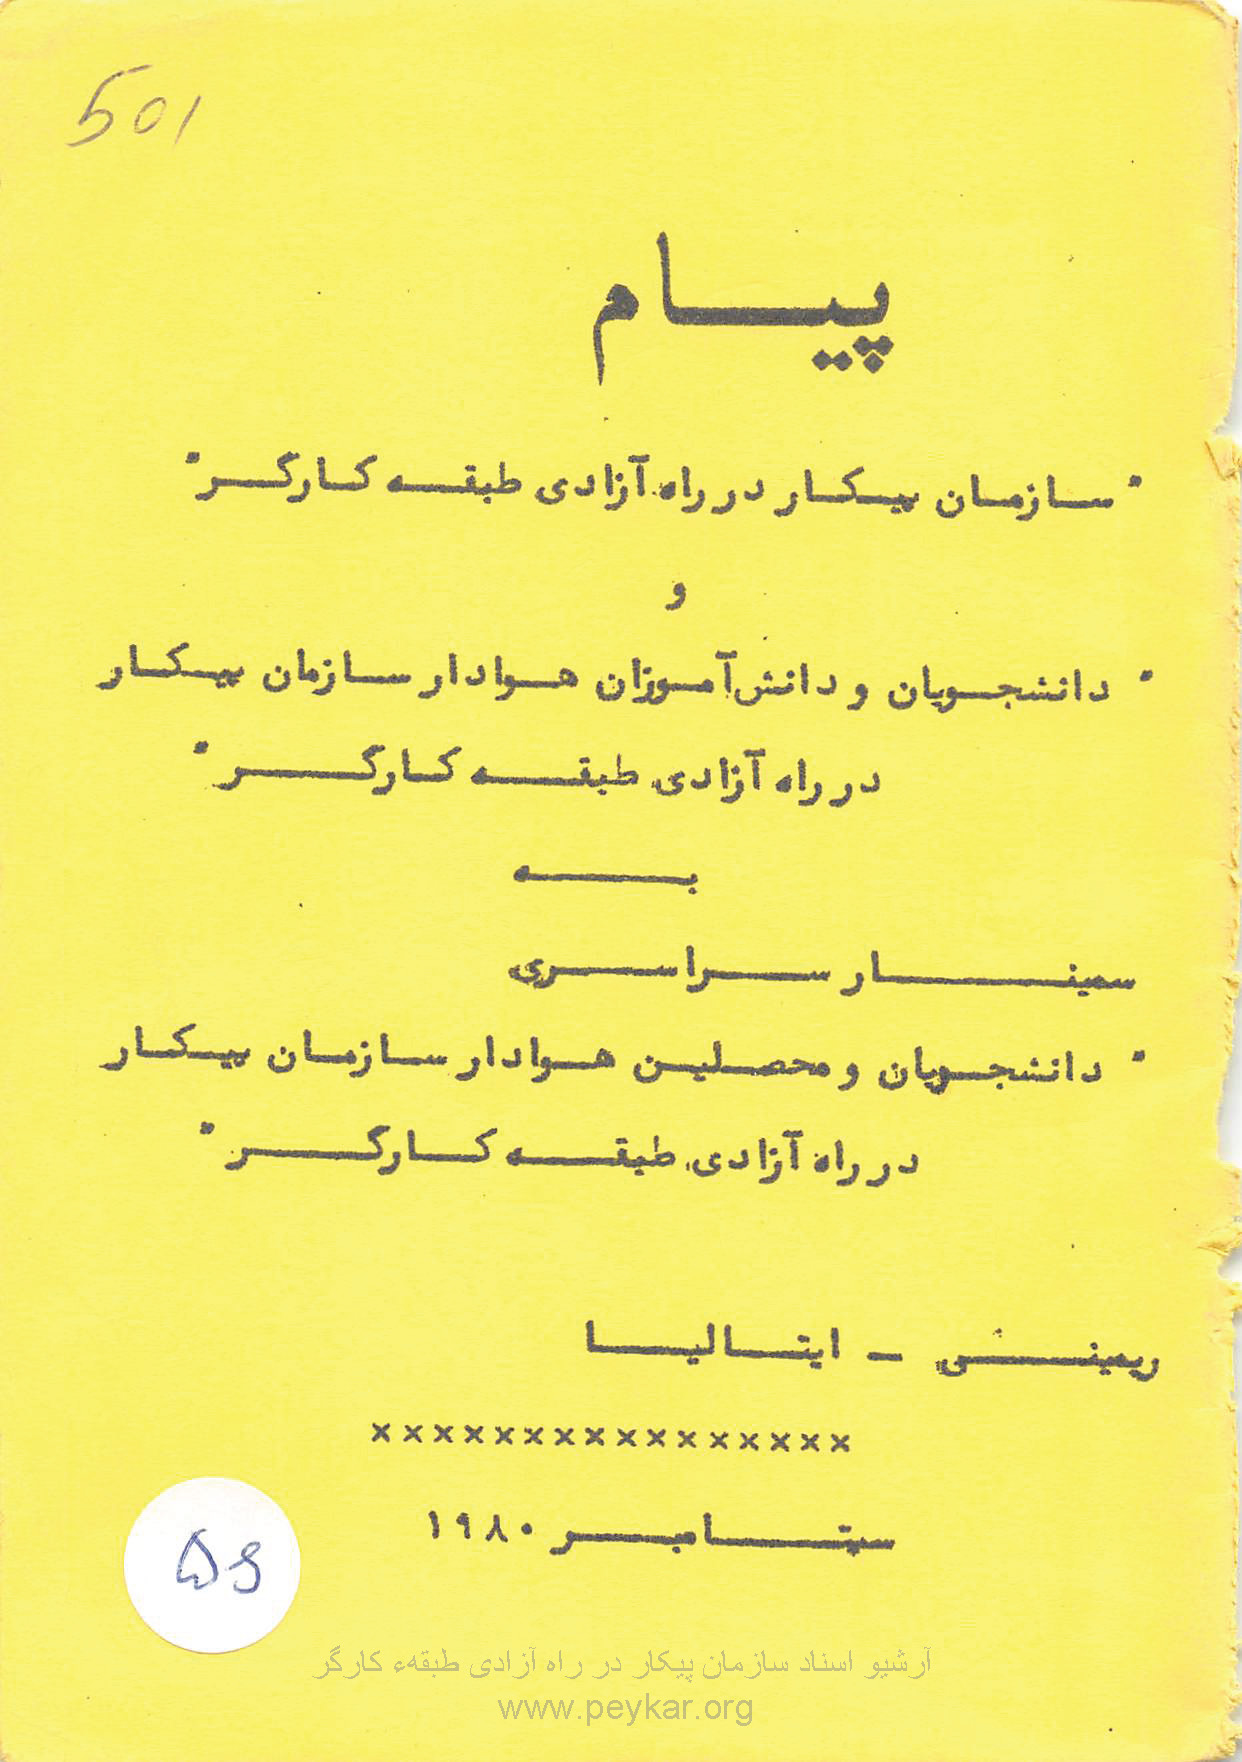 501
پیام
"سازمان پیکار در راه آزادی طبقه کارگر"
و
"دانشجویان و دانش‌آموزان هوادار سازمان پیکار
در راه آزادی طبقه کارگر"
به
سمینار سراسری
"دانشجویان و محصلین هوادار سازمان پیکار
در راه آزادی طبقه کارگر"
ریمینی – ایتالیا
××××××××××××××××
سپتامبر ۱۹۸۰
آرشیو اسناد سازمان پیکار در راه آزادی طبقهء کارگر
www.peykar.org